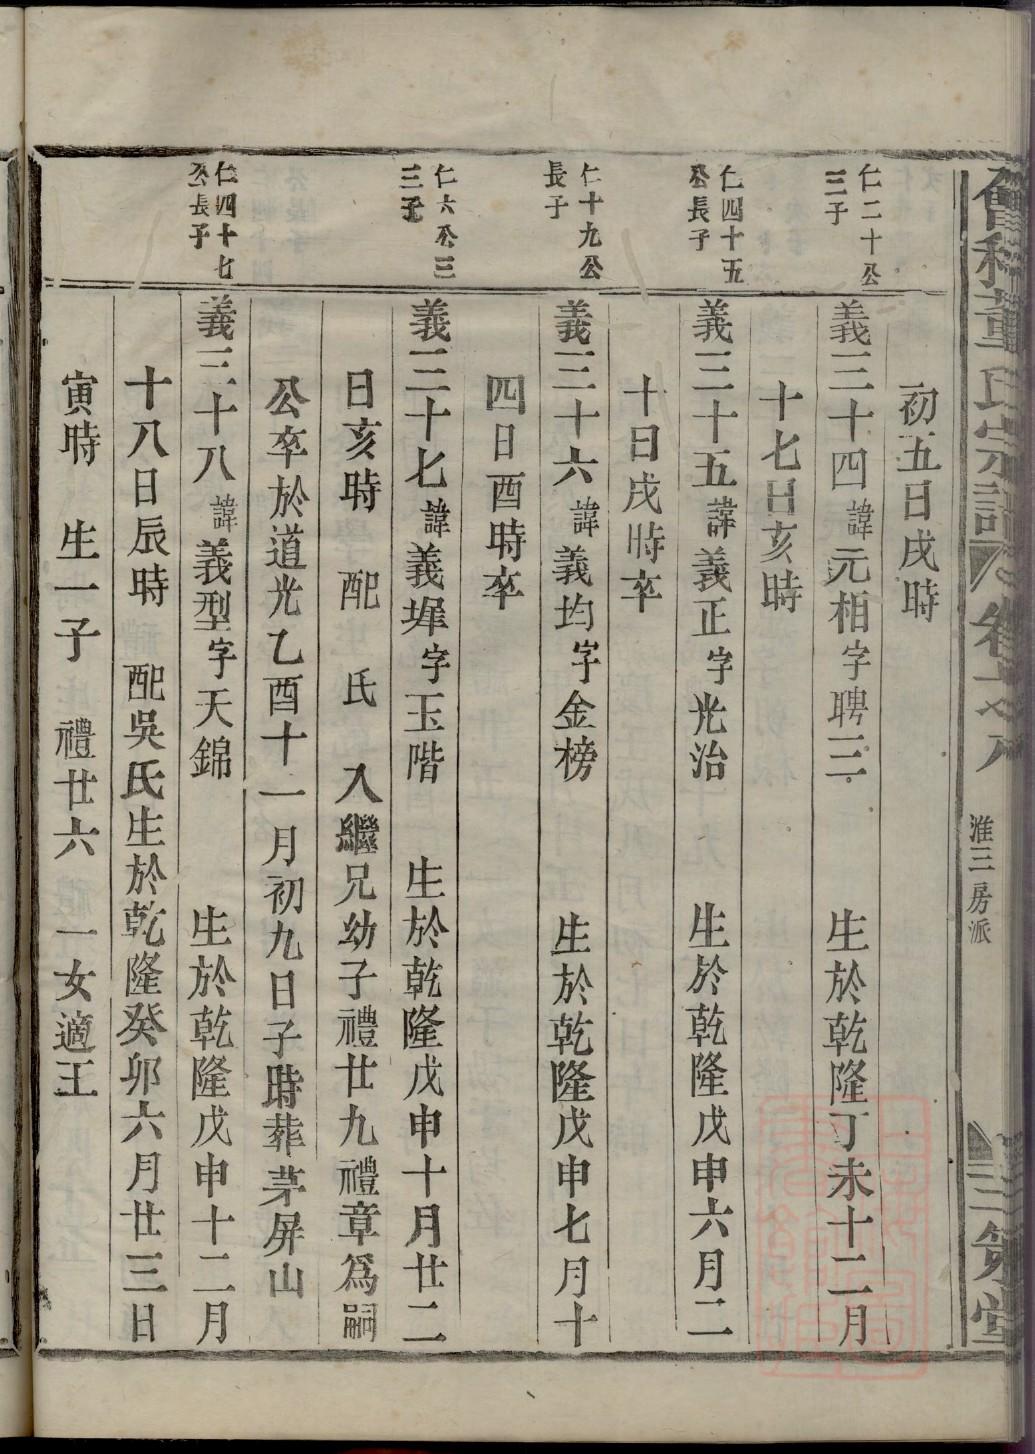 董氏宗譜
淮三房派
三策堂
初五日戌時
仁二十公
三子
義三十四諱元相字聘三 生於乾隆丁未十二月
十七日亥時
仁四十五
公長子
義三十五諱義正字光治 生於乾隆戊申六月二
十日戌時卒
仁十九公
長子
義三十六諱義均字金榜 生於乾隆戊申七月十
四日酉時卒
仁六公三
三子
義三十七諱義墀字玉階 生於乾隆戊申十月廿二
日亥時 配 氏 入繼兄幼子禮廿九禮章為嗣
公卒於道光乙酉十一月初九日子時葬茅屏山
仁四十七
公長子
義三十八諱義型字天錦 生於乾隆戊申十二月
十八日辰時 配吳氏生於乾隆癸卯六月廿三日
寅時 生一子禮廿六 一女適王